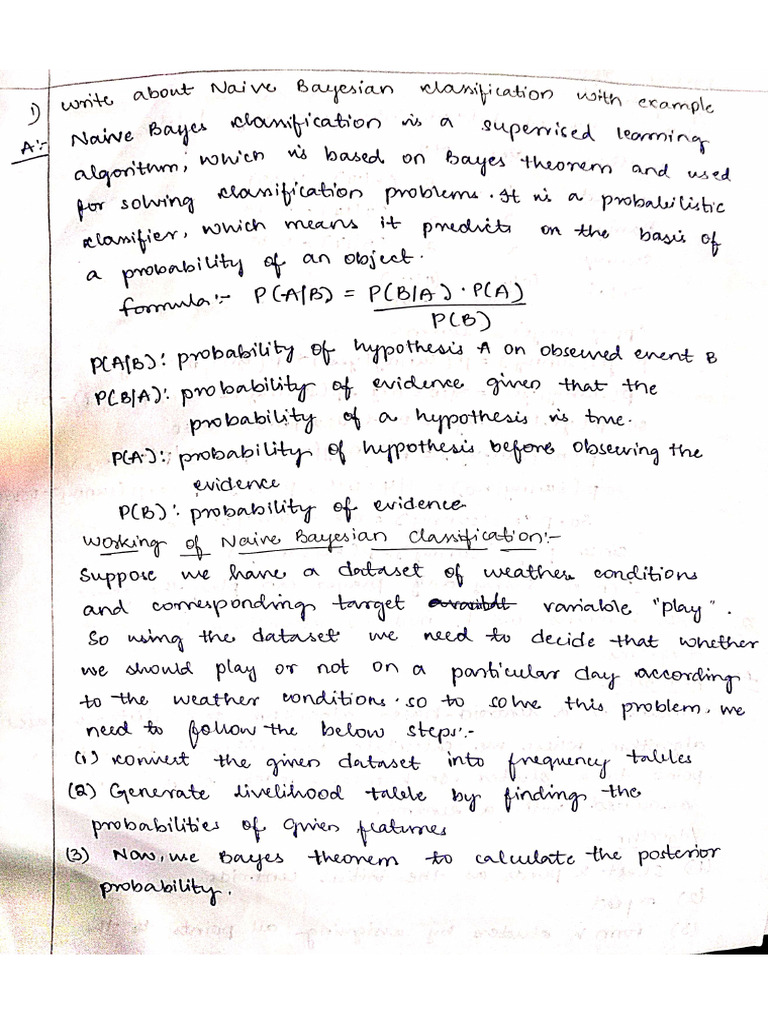 1) Write about Naive Bayesian classification with example
A:- Naive Bayes classification is a supervised learning
algorithm, which is based on Bayes theorem and used
for solving classification problems. It is a probabilistic
classifier, which means it predicts on the basis of
a probability of an object.
formula:- P(A/B) = P(B/A) · P(A)
P(B)
P(A/B): probability of hypothesis A on observed event B
P(B/A): probability of evidence given that the
probability of a hypothesis is true.
P(A): probability of hypothesis before observing the
evidence
P(B): probability of evidence
Working of Naive Bayesian Classification:-
Suppose we have a dataset of weather conditions
and corresponding target variable "play".
So using the dataset we need to decide that whether
we should play or not on a particular day according
to the weather conditions. so to solve this problem, we
need to follow the below steps:-
(1) convert the given dataset into frequency tables
(2) Generate livelihood table by finding the
probabilities of given features
(3) Now, use Bayes theorem to calculate the posterior
probability.